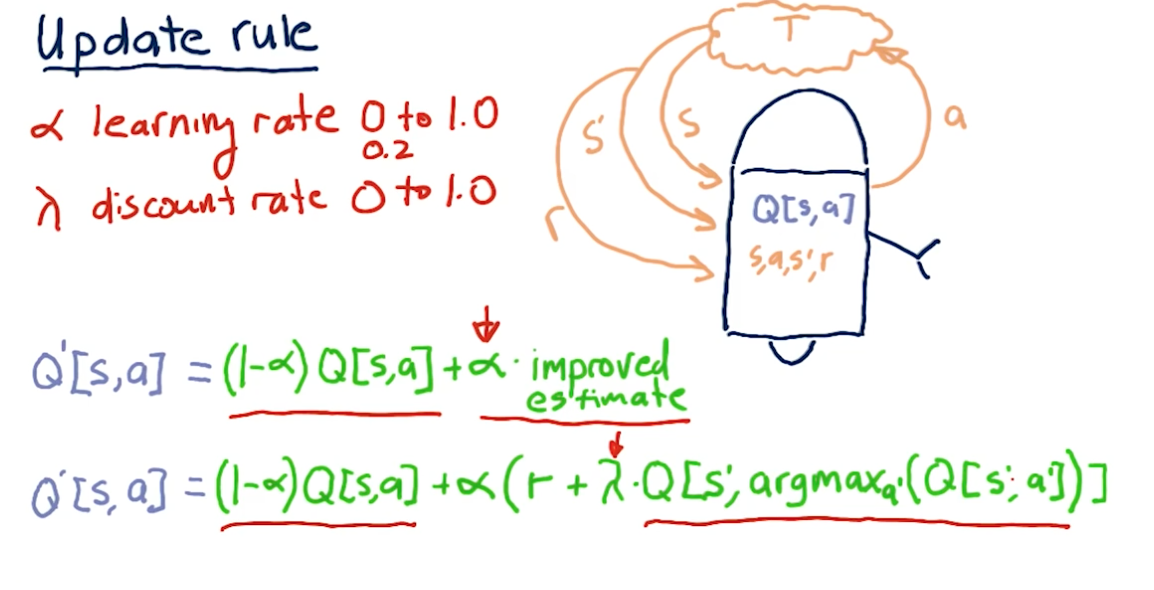 Update rule
α learning rate 0 to 1.0
0.2
λ discount rate 0 to 1.0
T
s'
s
a
r
Q[s,a]
s,a,s',r
Q'[s,a] = (1-α) Q[s,a] + α · improved
estimate
Q'[s,a] = (1-α)Q[s,a] + α(r + λ·Q[s', argmaxₐ'(Q[s',a'])]